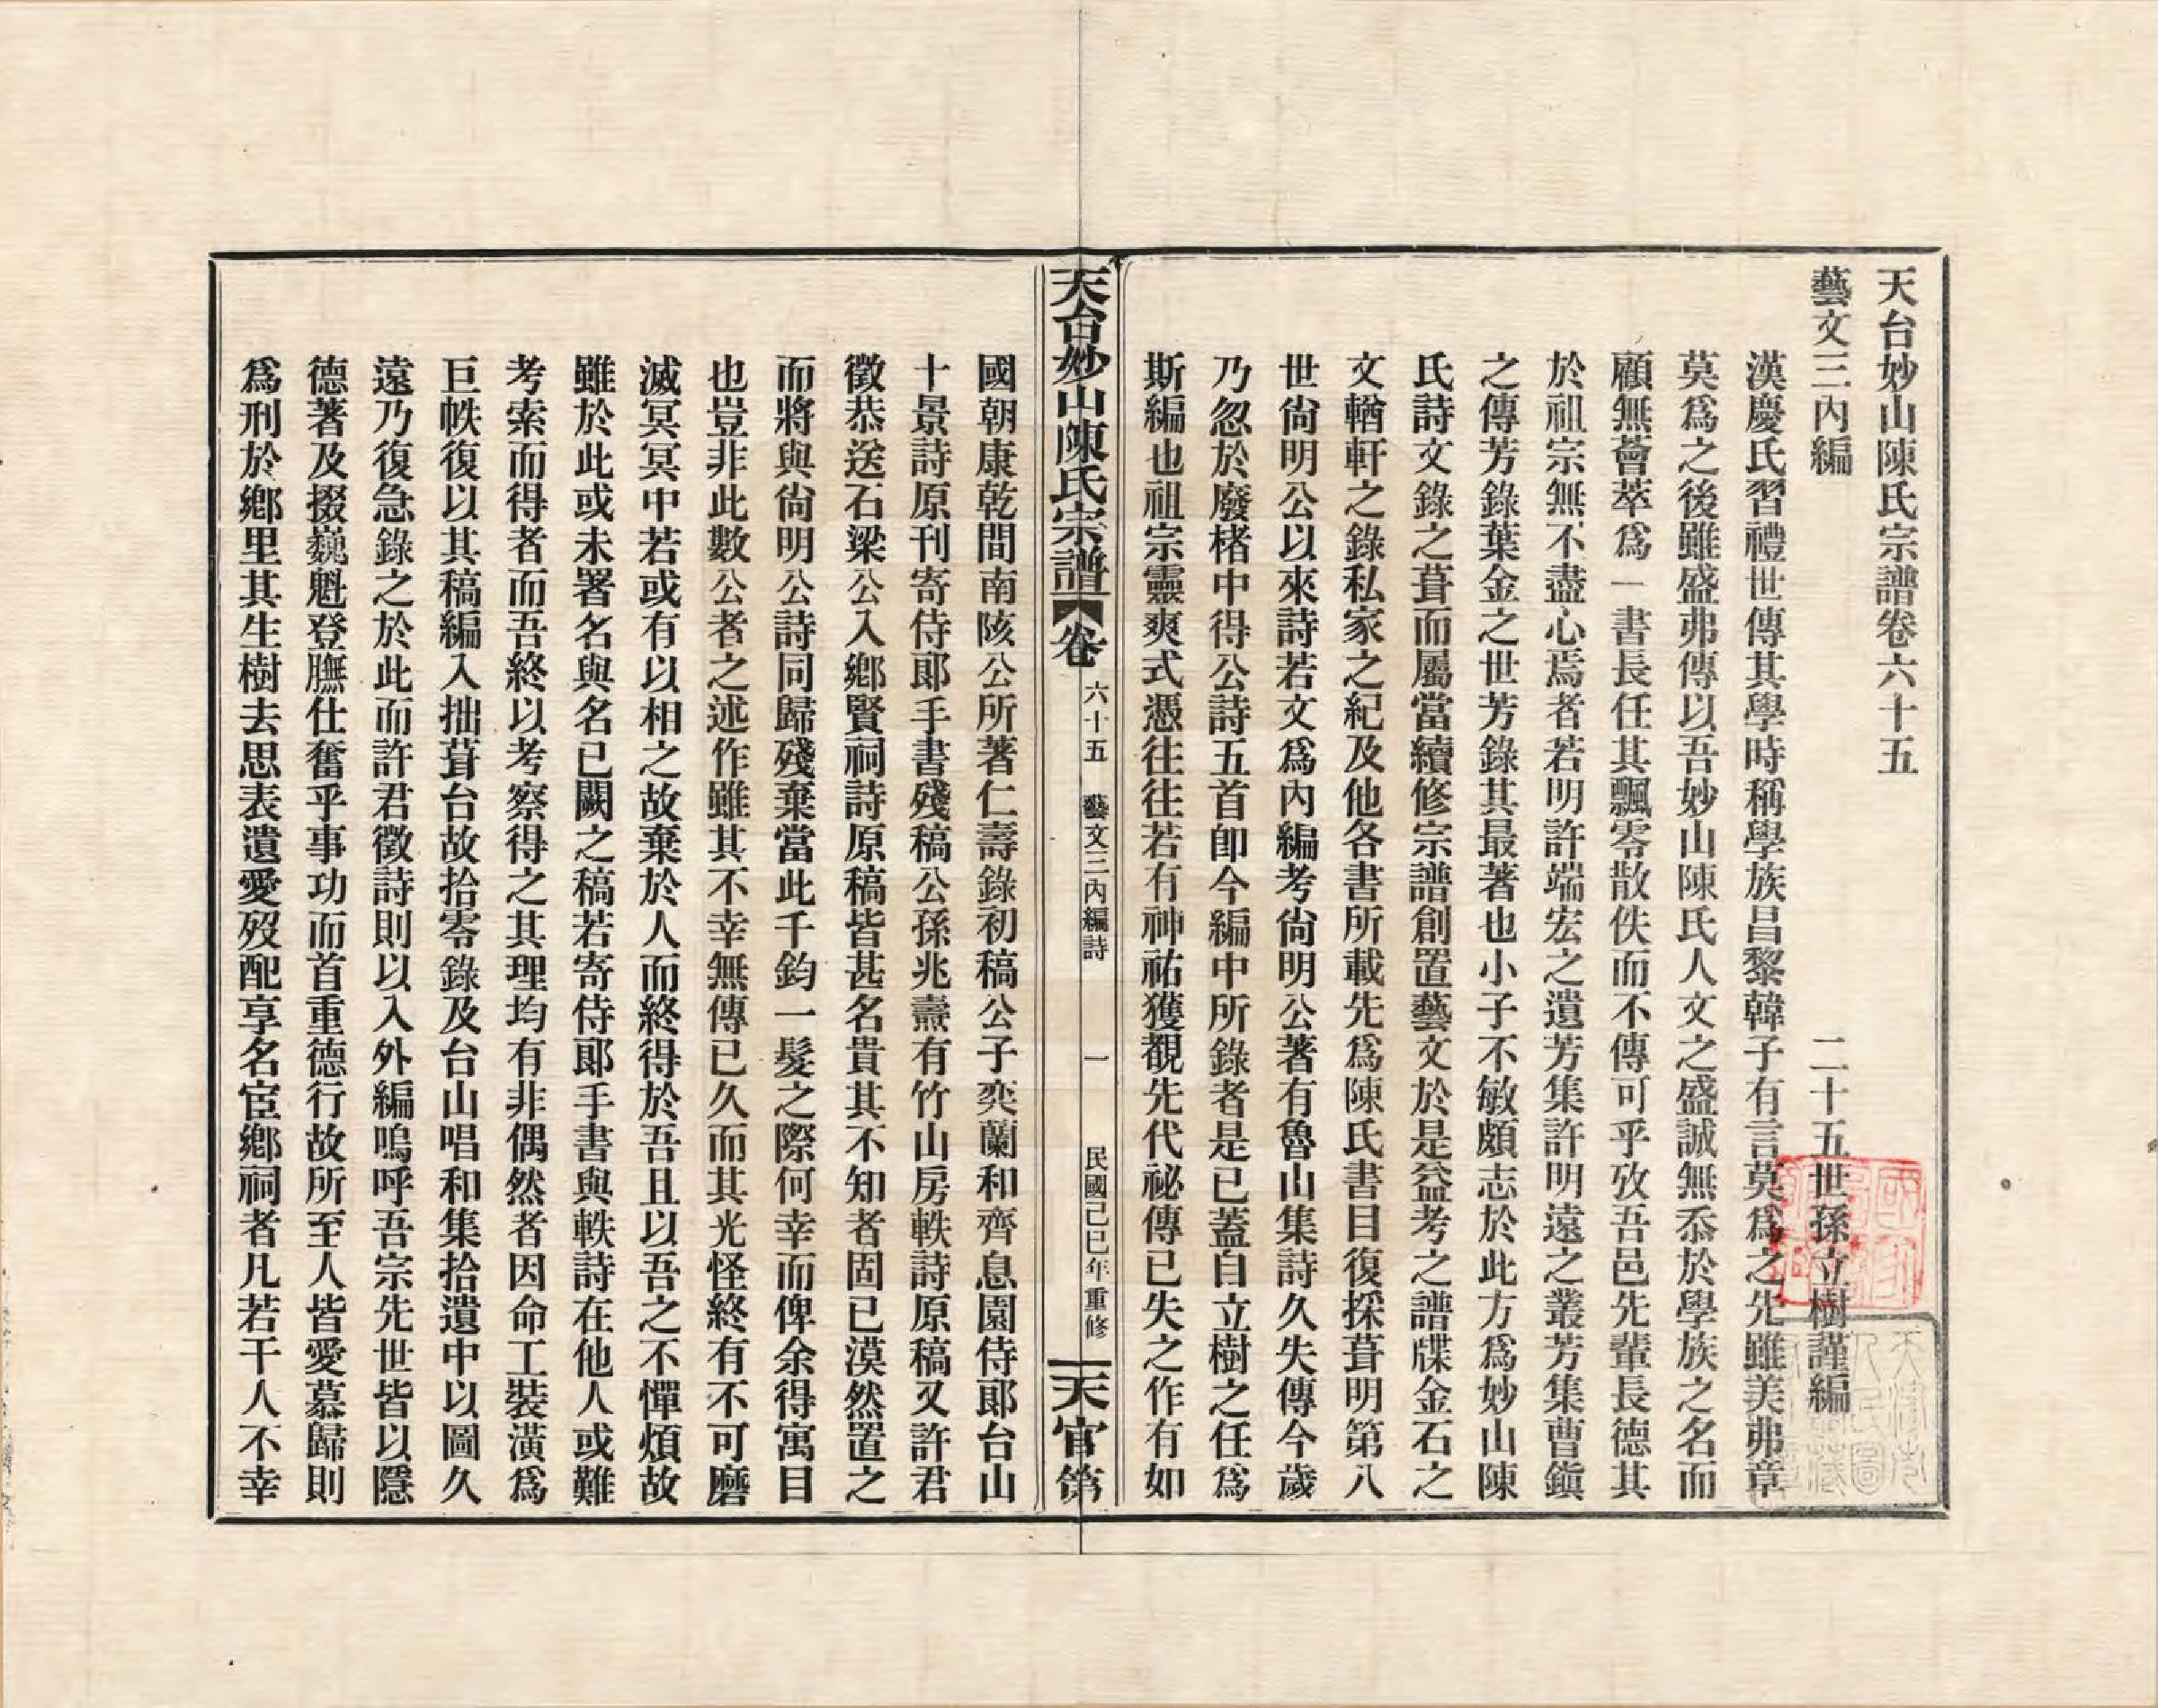 天台妙山陳氏宗譜卷六十五
藝文三內編
二十五世孫立樹謹編
漢慶氏習禮世傳其學時稱學族昌黎韓子有言莫爲之先雖美弗章
莫爲之後雖盛弗傳以吾妙山陳氏人文之盛誠無忝於學族之名而
顧無薈萃爲一書長任其飄零散佚而不傳可乎攷吾邑先輩長德其
於祖宗無不盡心焉者若明許端宏之遺芳集許明遠之叢芳集曹鎭
之傳芳錄葉金之世芳錄其最著也小子不敏頗志於此方爲妙山陳
氏詩文錄之葺而屬當續修宗譜創置藝文於是益考之譜牒金石之
文輶軒之錄私家之紀及他各書所載先爲陳氏書目復採葺明第八
世尙明公以來詩若文爲內編考尙明公著有魯山集詩久失傳今歲
乃忽於廢楮中得公詩五首卽今編中所錄者是已蓋自立樹之任爲
斯編也祖宗靈爽式憑往往若有神祐獲覩先代祕傳已失之作有如
天台妙山陳氏宗譜
卷
六十五
藝文三內編詩
一
民國己巳年重修
天官第
國朝康乾間南陔公所著仁壽錄初稿公子奕蘭和齊息園侍郞台山
十景詩原刊寄侍郞手書殘稿公孫兆燾有竹山房軼詩原稿又許君
徵恭送石梁公入鄕賢祠詩原稿皆甚名貴其不知者固已漠然置之
而將與尙明公詩同歸殘棄當此千鈞一髮之際何幸而俾余得寓目
也豈非此數公者之述作雖其不幸無傳已久而其光怪終有不可磨
滅冥冥中若或有以相之故棄於人而終得於吾且以吾之不憚煩故
雖於此或未署名與名已闕之稿若寄侍郞手書與軼詩在他人或難
考索而得者而吾終以考察得之其理均有非偶然者因命工裝潢爲
巨帙復以其稿編入拙葺台故拾零錄及台山唱和集拾遺中以圖久
遠乃復急錄之於此而許君徵詩則以入外編嗚呼吾宗先世皆以隱
德著及掇巍魁登膴仕奮乎事功而首重德行故所至人皆愛慕歸則
爲刑於鄕里其生樹去思表遺愛歿配享名宦鄕祠者凡若干人不幸